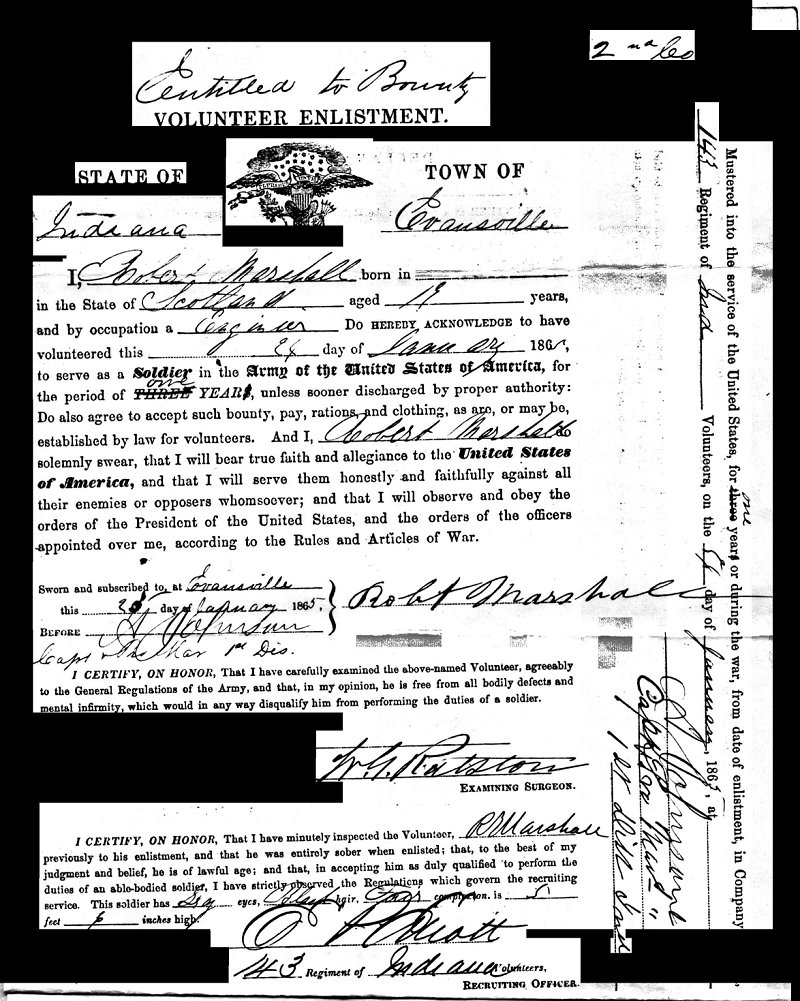 2nd Co
Entitled to Bounty
VOLUNTEER ENLISTMENT.
STATE OF
TOWN OF
Indiana
Evansville
I, Robert Marshall born in
in the State of Scotland aged 19 years,
and by occupation a Engineer Do HEREBY ACKNOWLEDGE to have
volunteered this day of January 1865,
to serve as a Soldier in the Army of the United States of America, for
one
the period of THREE YEARS, unless sooner discharged by proper authority:
Do also agree to accept such bounty, pay, rations, and clothing, as are, or may be,
established by law for volunteers. And I, Robert Marshall do
solemnly swear, that I will bear true faith and allegiance to the United States
of America, and that I will serve them honestly and faithfully against all
their enemies or opposers whomsoever; and that I will observe and obey the
orders of the President of the United States, and the orders of the officers
appointed over me, according to the Rules and Articles of War.
Sworn and subscribed to, at Evansville
this day of January 1865,
BEFORE Johnson
Robt Marshall
Capt & Pro Mar 1st Dis.
I CERTIFY, ON HONOR, That I have carefully examined the above-named Volunteer, agreeably
to the General Regulations of the Army, and that, in my opinion, he is free from all bodily defects and
mental infirmity, which would in any way disqualify him from performing the duties of a soldier.
W. G. Ralston
EXAMINING SURGEON.
I CERTIFY, ON HONOR, That I have minutely inspected the Volunteer, R Marshall
previously to his enlistment, and that he was entirely sober when enlisted; that, to the best of my
judgment and belief, he is of lawful age; and that, in accepting him as duly qualified to perform the
duties of an able-bodied soldier, I have strictly observed the Regulations which govern the recruiting
service. This soldier has eyes, hair, complexion, is 5
feet inches high.
143 Regiment of Indiana Volunteers,
RECRUITING OFFICER.
Mustered into the service of the United States, for three one years or during the war, from date of enlistment, in Company
143 Regiment of Ind Volunteers, on the day of January, 1865, at
Johnson
Capt & Pro Mar
1st Dist Ind